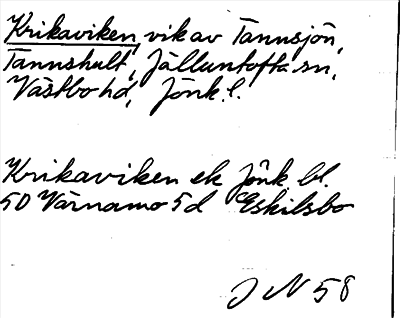 Krikaviken, vik av Tannsjön,
Tannshult, Jälluntofta sn,
Västbo hd, Jönk. l.
Krikaviken ek Jönk. bl.
50 Värnamo 5d Eskilsbo
J N 58